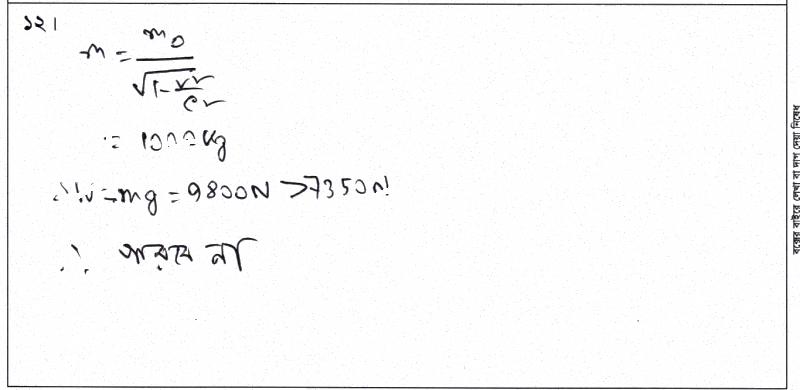 ১২।
m = m₀ / √(1 - v²/c²)
= 1000 kg
∴ W = mg = 9800N > 7350N
∴ পারবে না
বক্সের বাইরে লেখা বা দাগ দেয়া নিষেধ